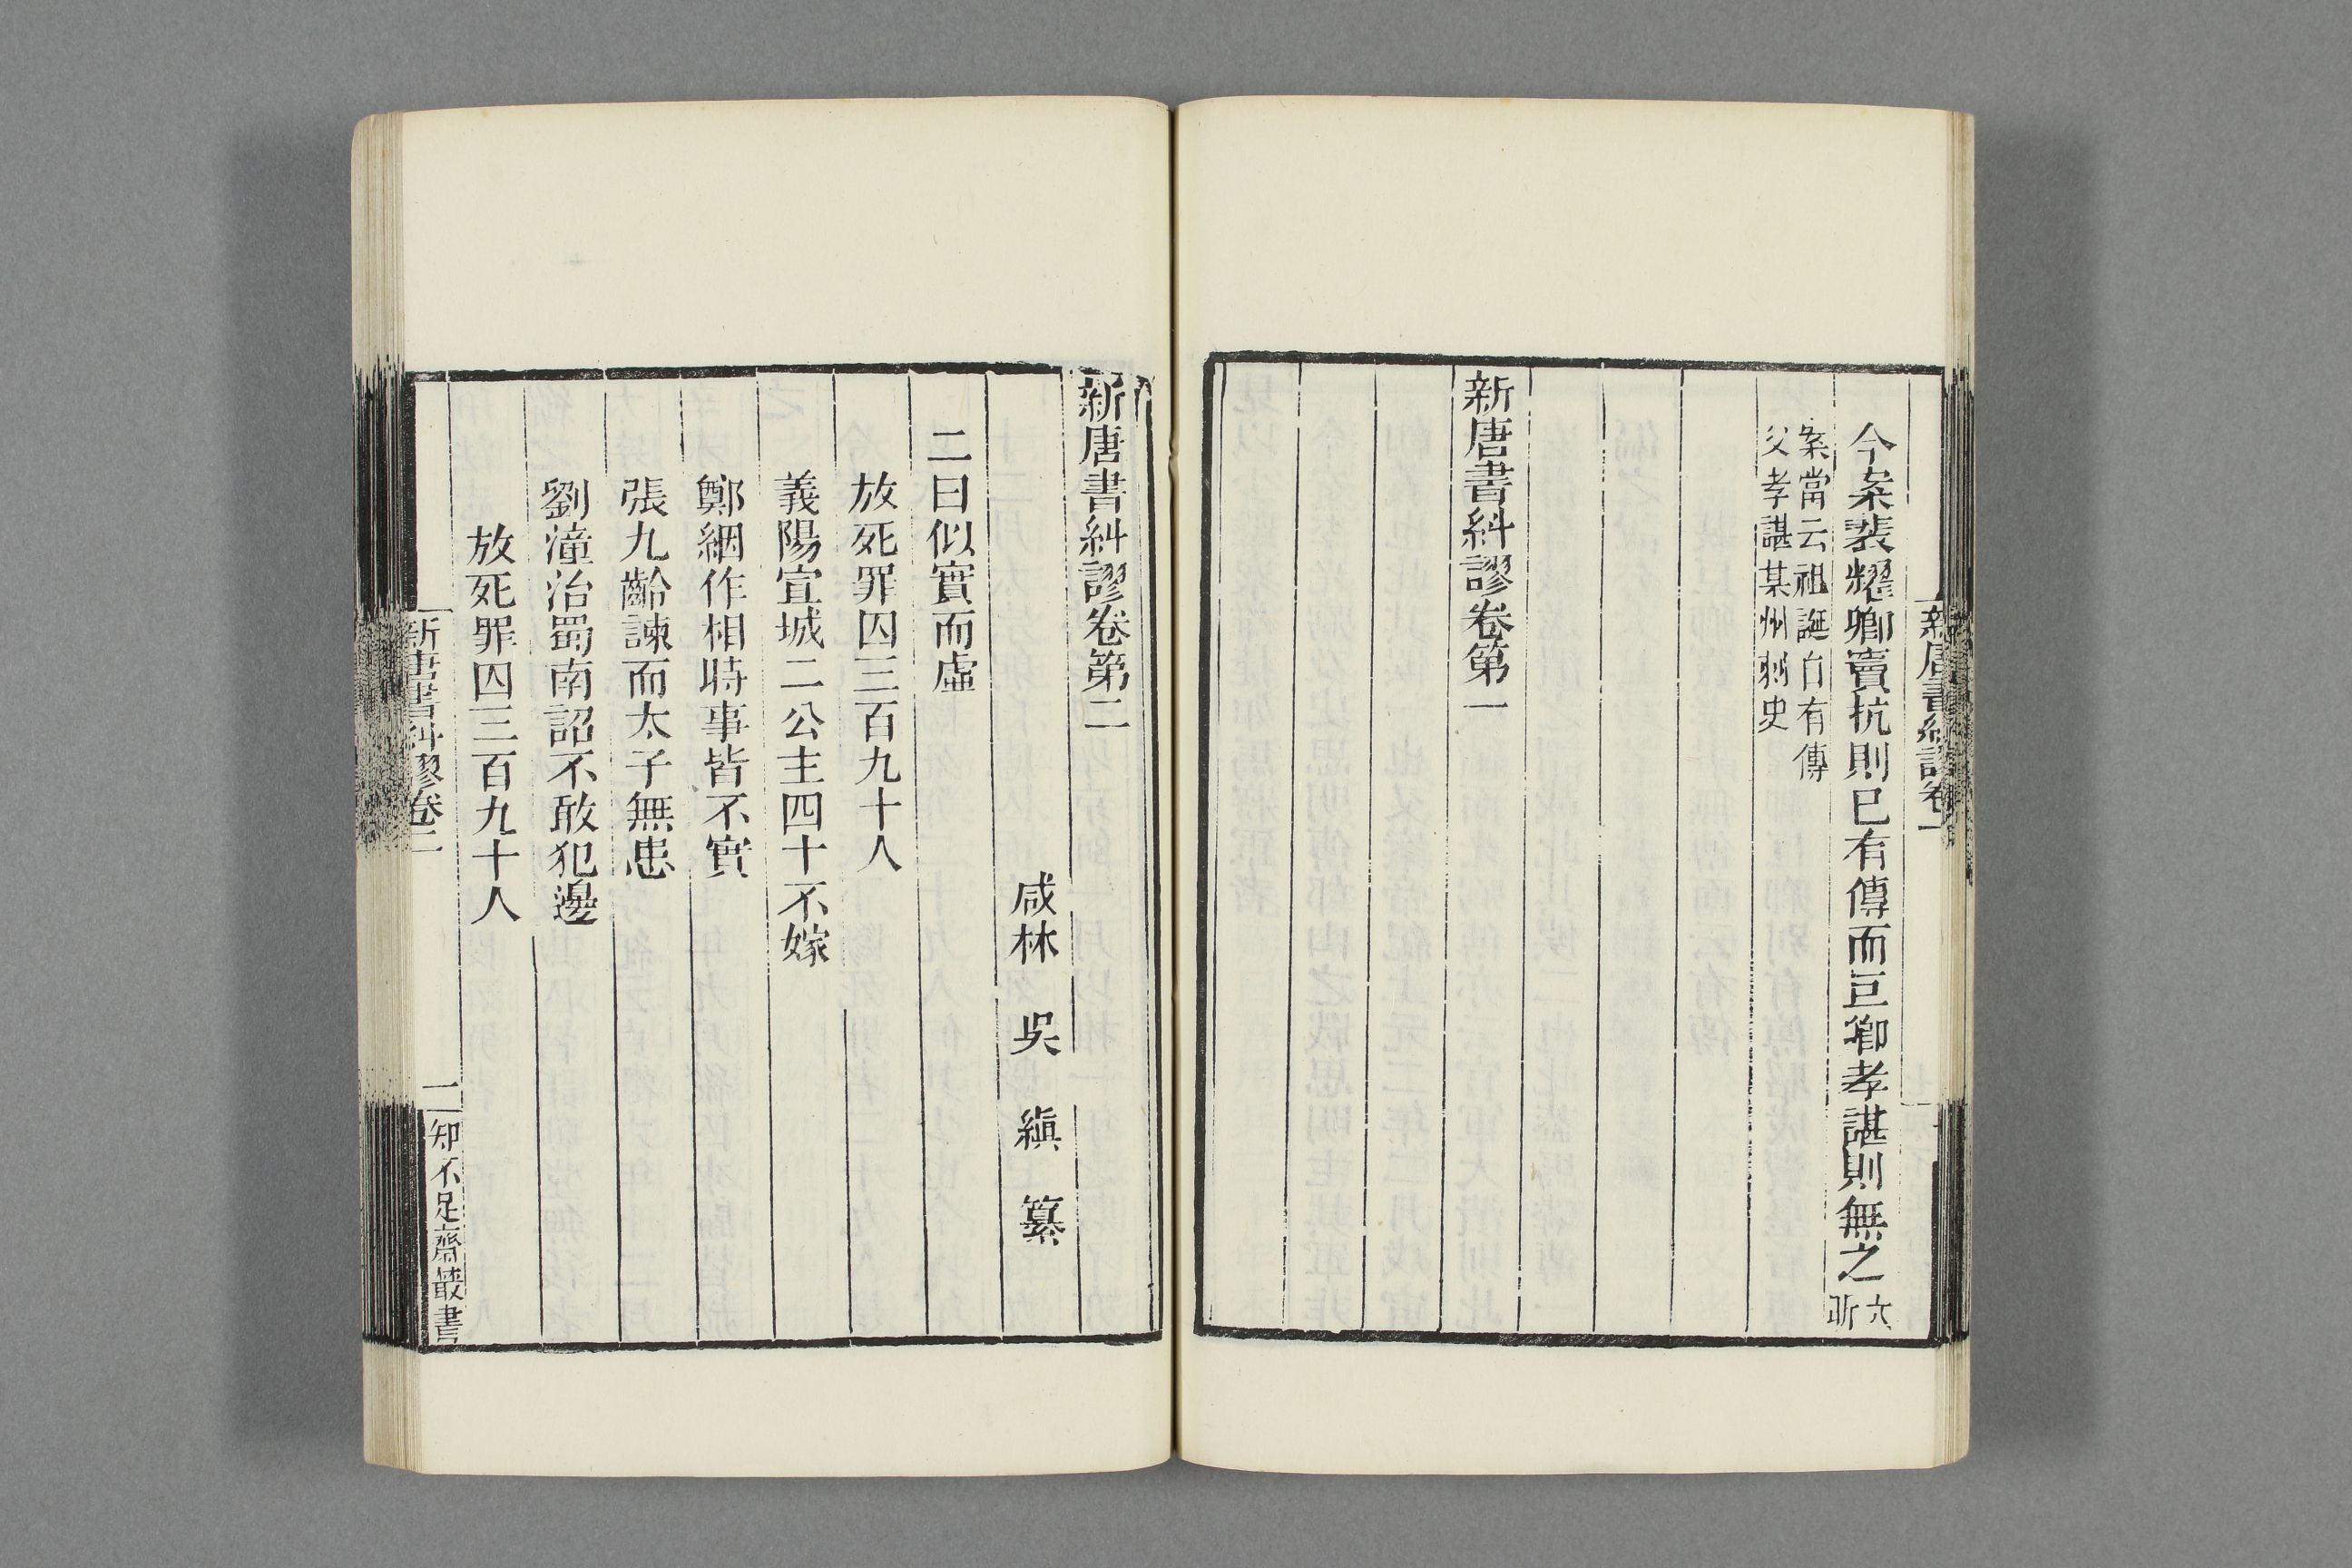 新唐書糾謬卷一
今案裴耀卿竇抗則已有傳而巨卿孝諶則無之
案當云祖誕自有傳
父孝諶某州刺史
新唐書糾謬卷第一
新唐書糾謬卷第二
咸林 吳 縝 纂
二曰似實而虛
放死罪囚三百九十人
義陽宣城二公主四十不嫁
鄭絪作相時事皆不實
張九齡諫而太子無患
劉潼治蜀南詔不敢犯邊
放死罪囚三百九十人
新唐書糾謬卷二
一
知不足齋叢書